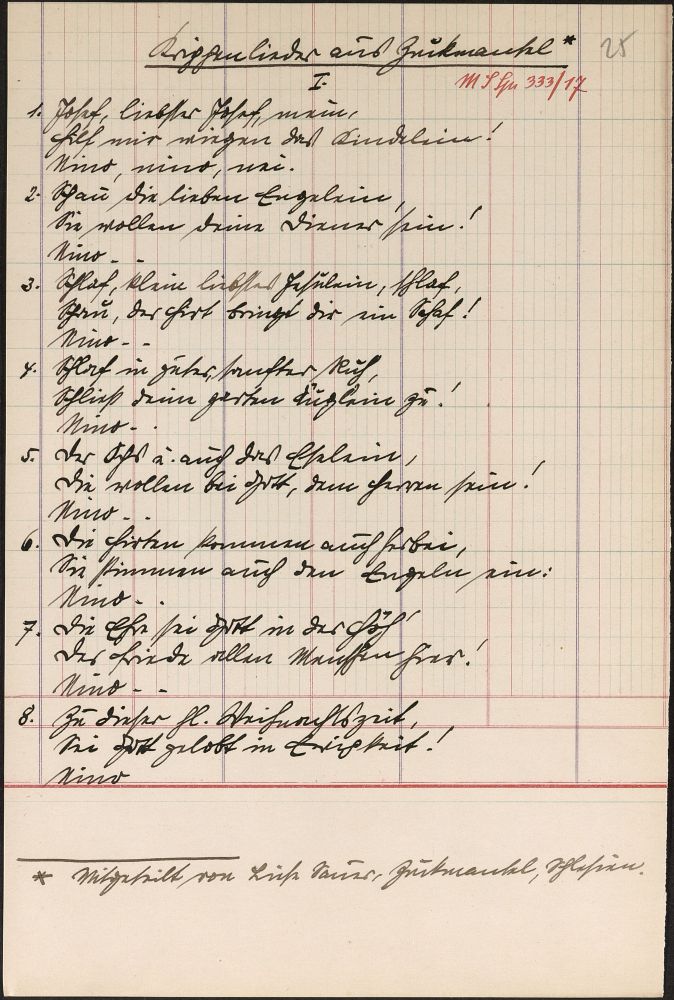 Krippenlieder aus Zuckmantel * 25
I. 333/17
1. Josef, liebster Josef, mein,
hilf mir wiegen das Kindelein!
Nino, nino, nei.
2. Schau die lieben Engelein,
Sie wollen deine Diener sein!
Nino - -
3. Schlaf, klein liebstes Jesulein, schlaf,
Schau, der Hirt bringt dir ein Schaf!
Nino - -
4. Schlaf in guter, sanfter Ruh,
Schließ dein zarten Äuglein zu!
Nino - -
5. Der Ochs u. auch das Eselein,
Die wollen bei Gott, dem Herren sein!
Nino - -
6. Die Hirten kommen auch herbei,
Sie stimmen auch den Engeln ein:
Nino - -
7. Die Ehre sei Gott in der Höh'
Der Friede allen Menschen hier!
Nino - -
8. Zu dieser hl. Weihnachtszeit,
Sei Gott gelobt in Ewigkeit!
Nino
* Mitgeteilt von Sauer, Zuckmantel, Schlesien.